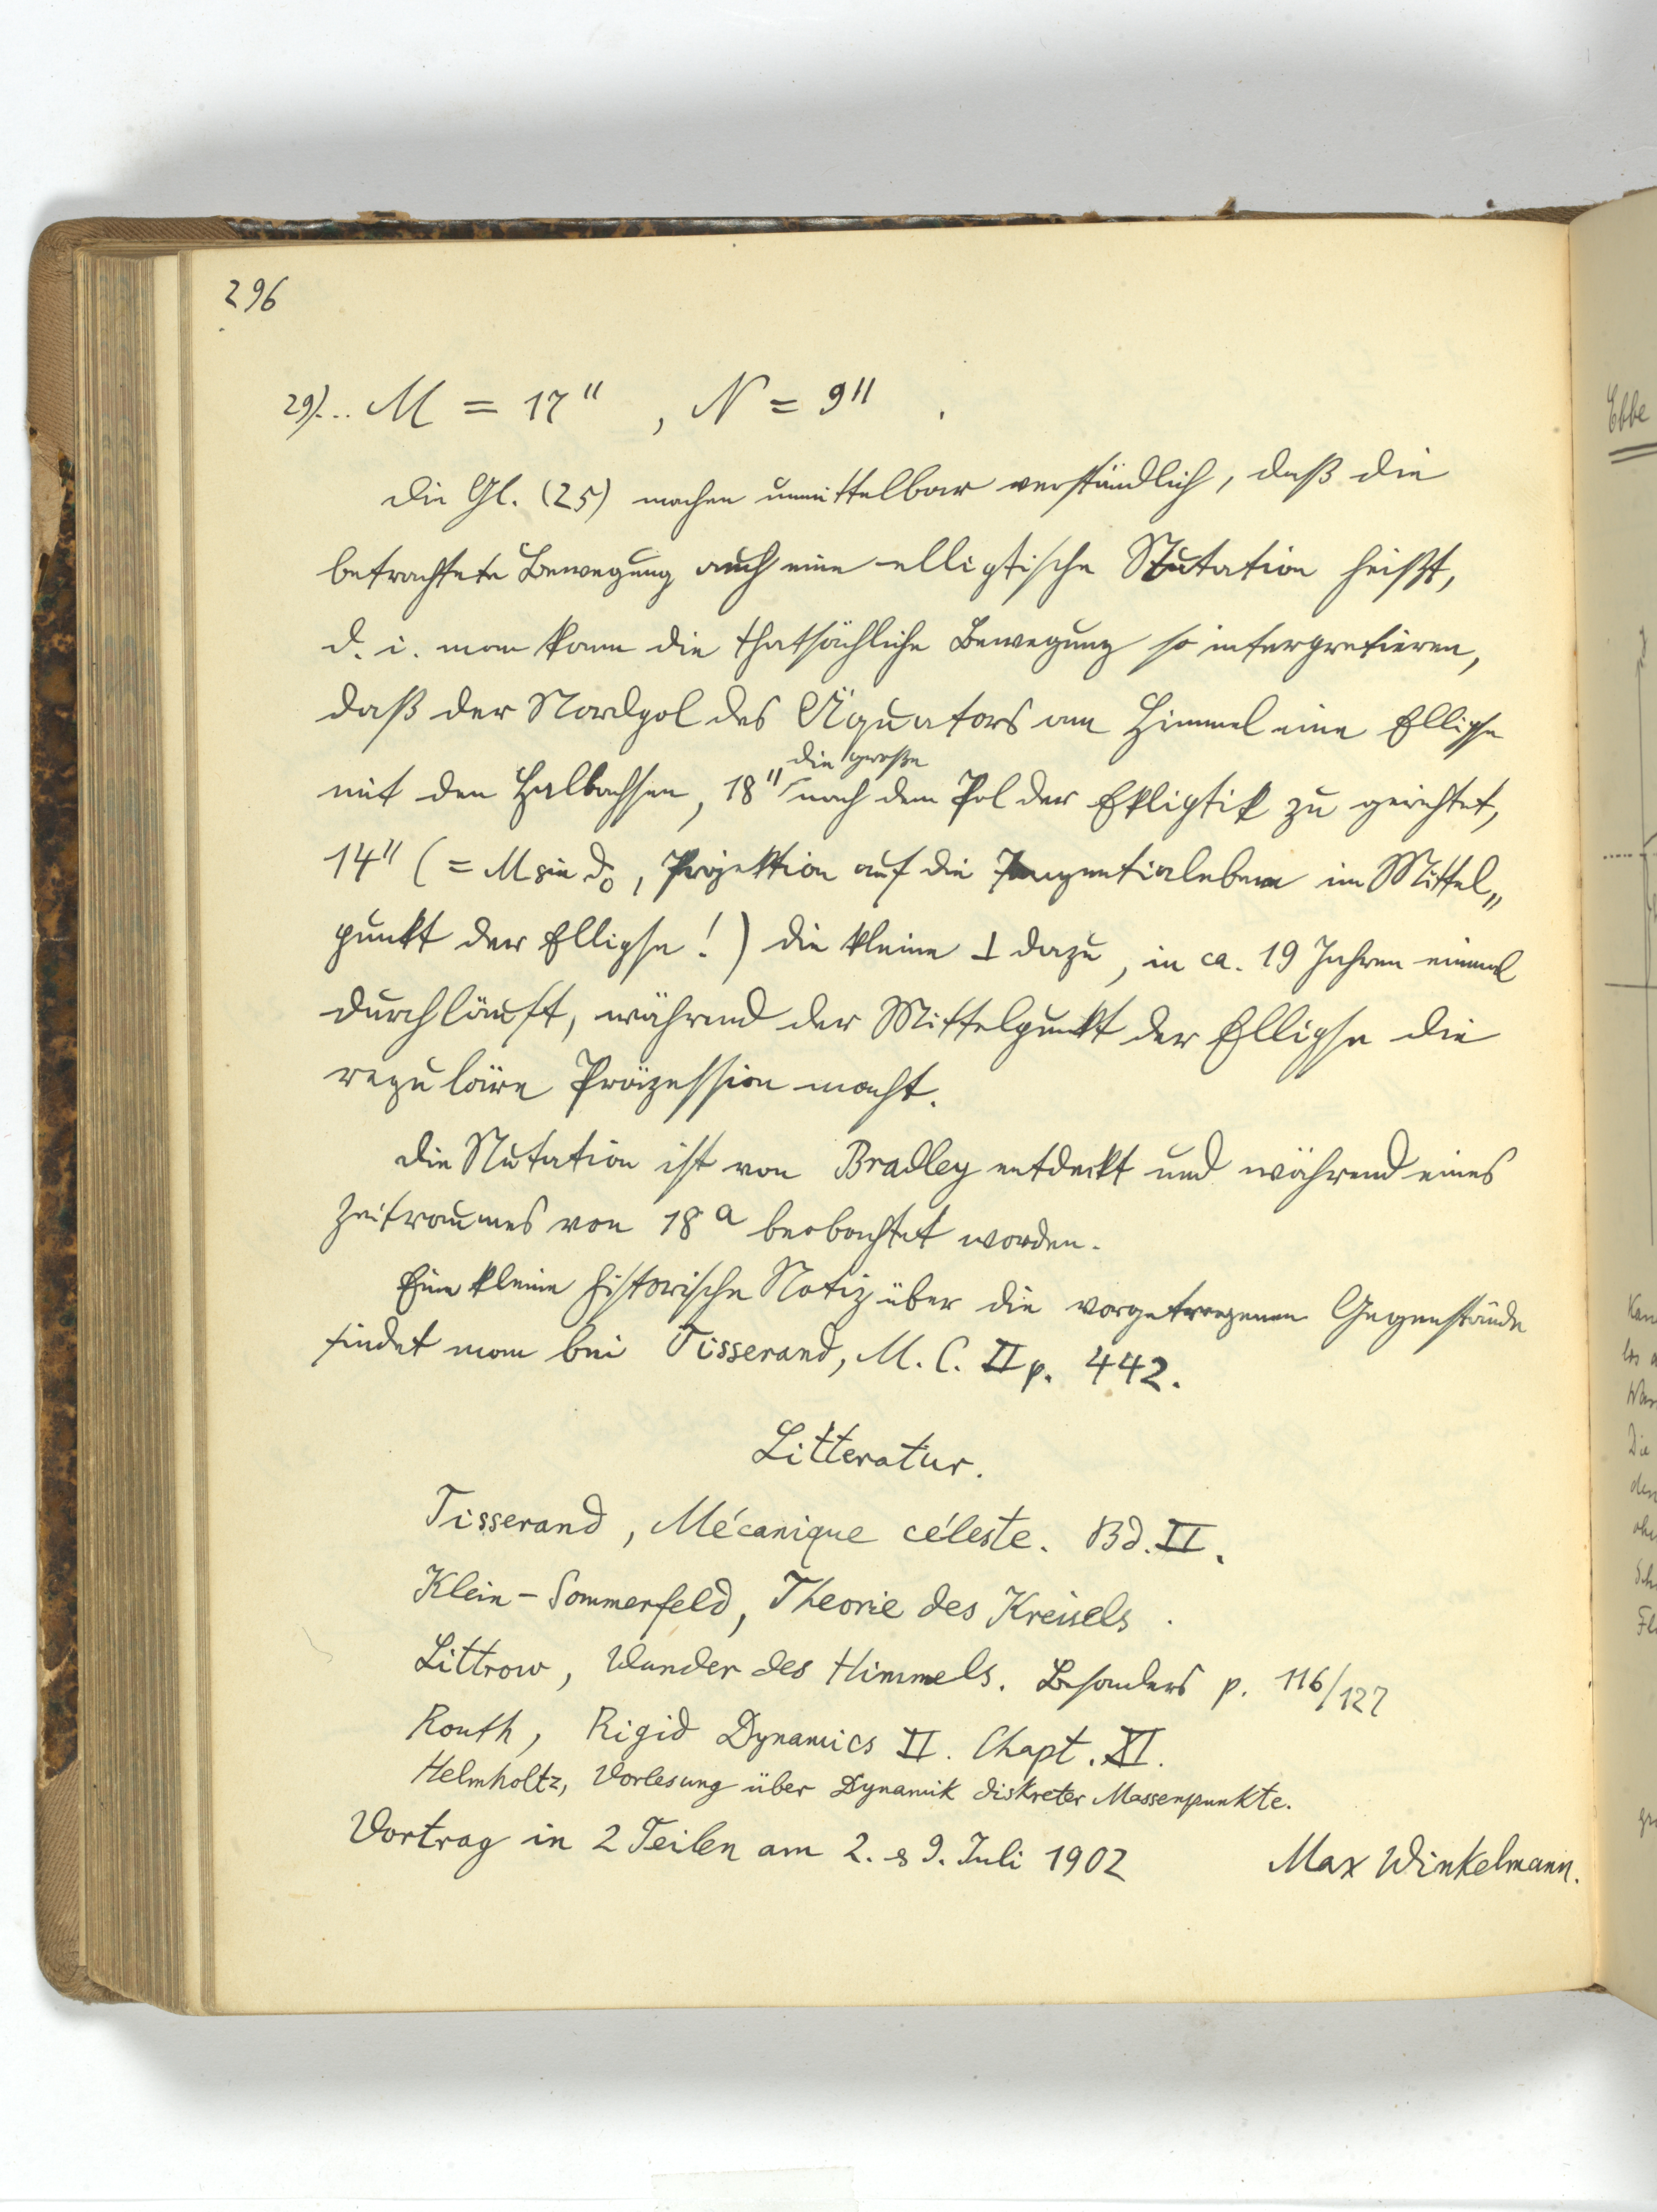 296
29)... M = 17" , N = 9" .
Die Gl. (25) machen unmittelbar verständlich, daß die
betrachtete Bewegung auch eine elliptische Nutation heißt,
d. i. man kann die thatsächliche Bewegung so interpretieren,
daß der Nordpol des Äquators am Himmel eine Ellipse
die große
mit den Halbachsen, 18" nach dem Pol der Ekliptik zu gerichtet,
14" (= M sin ϑ₀, Projektion auf die Tangentialebene im Mittel„
punkt der Ellipse!) die kleine ⊥ dazu, in ca. 19 Jahren einmal
durchläuft, während der Mittelpunkt der Ellipse die
reguläre Präzession macht.
Die Nutation ist von Bradley entdeckt und während eines
Zeitraumes von 18 a beobachtet worden.
Eine kleine historische Notiz über die vorgetragenen Gegenstände
findet man bei Tisserand, M. C. II p. 442.
Litteratur.
Tisserand, Mécanique céleste. Bd. II.
Klein - Sommerfeld, Theorie des Kreisels.
Littrow, Wunder des Himmels. Besonders p. 116/127
Routh, Rigid Dynamics II. Chapt. XI.
Helmholtz, Vorlesung über Dynamik diskreter Massenpunkte.
Vortrag in 2 Teilen am 2. & 9. Juli 1902 Max Winkelmann.
Ebbe
Die